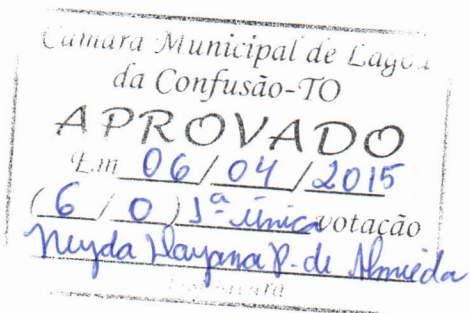 Câmara Municipal de Lagoa
da Confusão-TO
APROVADO
Em 06/04/2015
(6/0) 1ª única votação
Neyda Dayana P. de Almeida